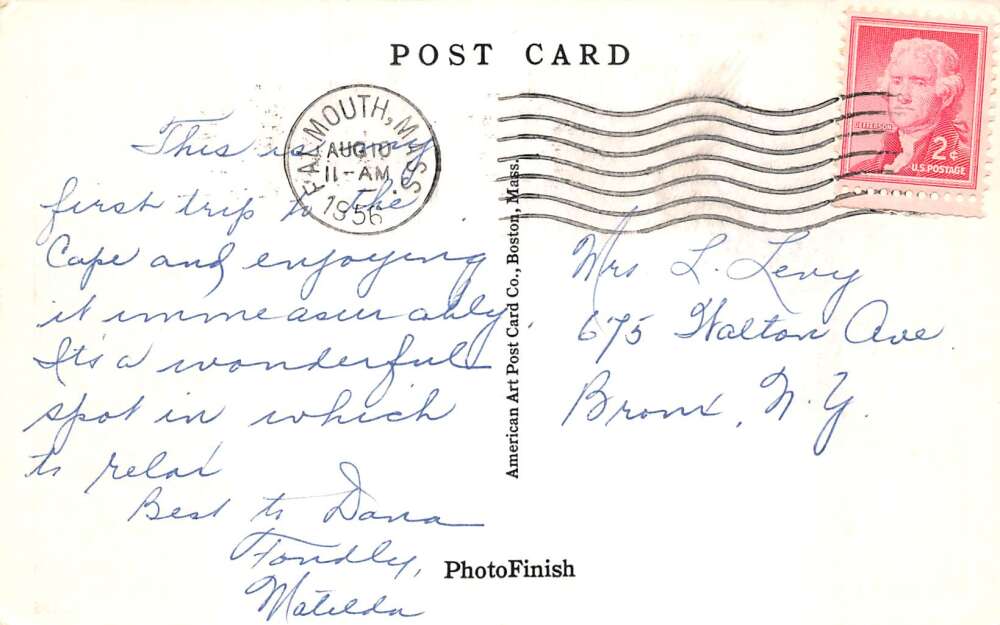 POST CARD
FALMOUTH, MASS.
AUG 10
11-AM
1956
JEFFERSON
2¢
U.S. POSTAGE
This is my
first trip to the
Cape and enjoying
it immeasurably.
It's a wonderful
spot in which
to relax
Best to Dana
Fondly,
Matilda
American Art Post Card Co., Boston, Mass.
Mrs L. Levy
675 Walton Ave.
Bronx, N.Y.
PhotoFinish